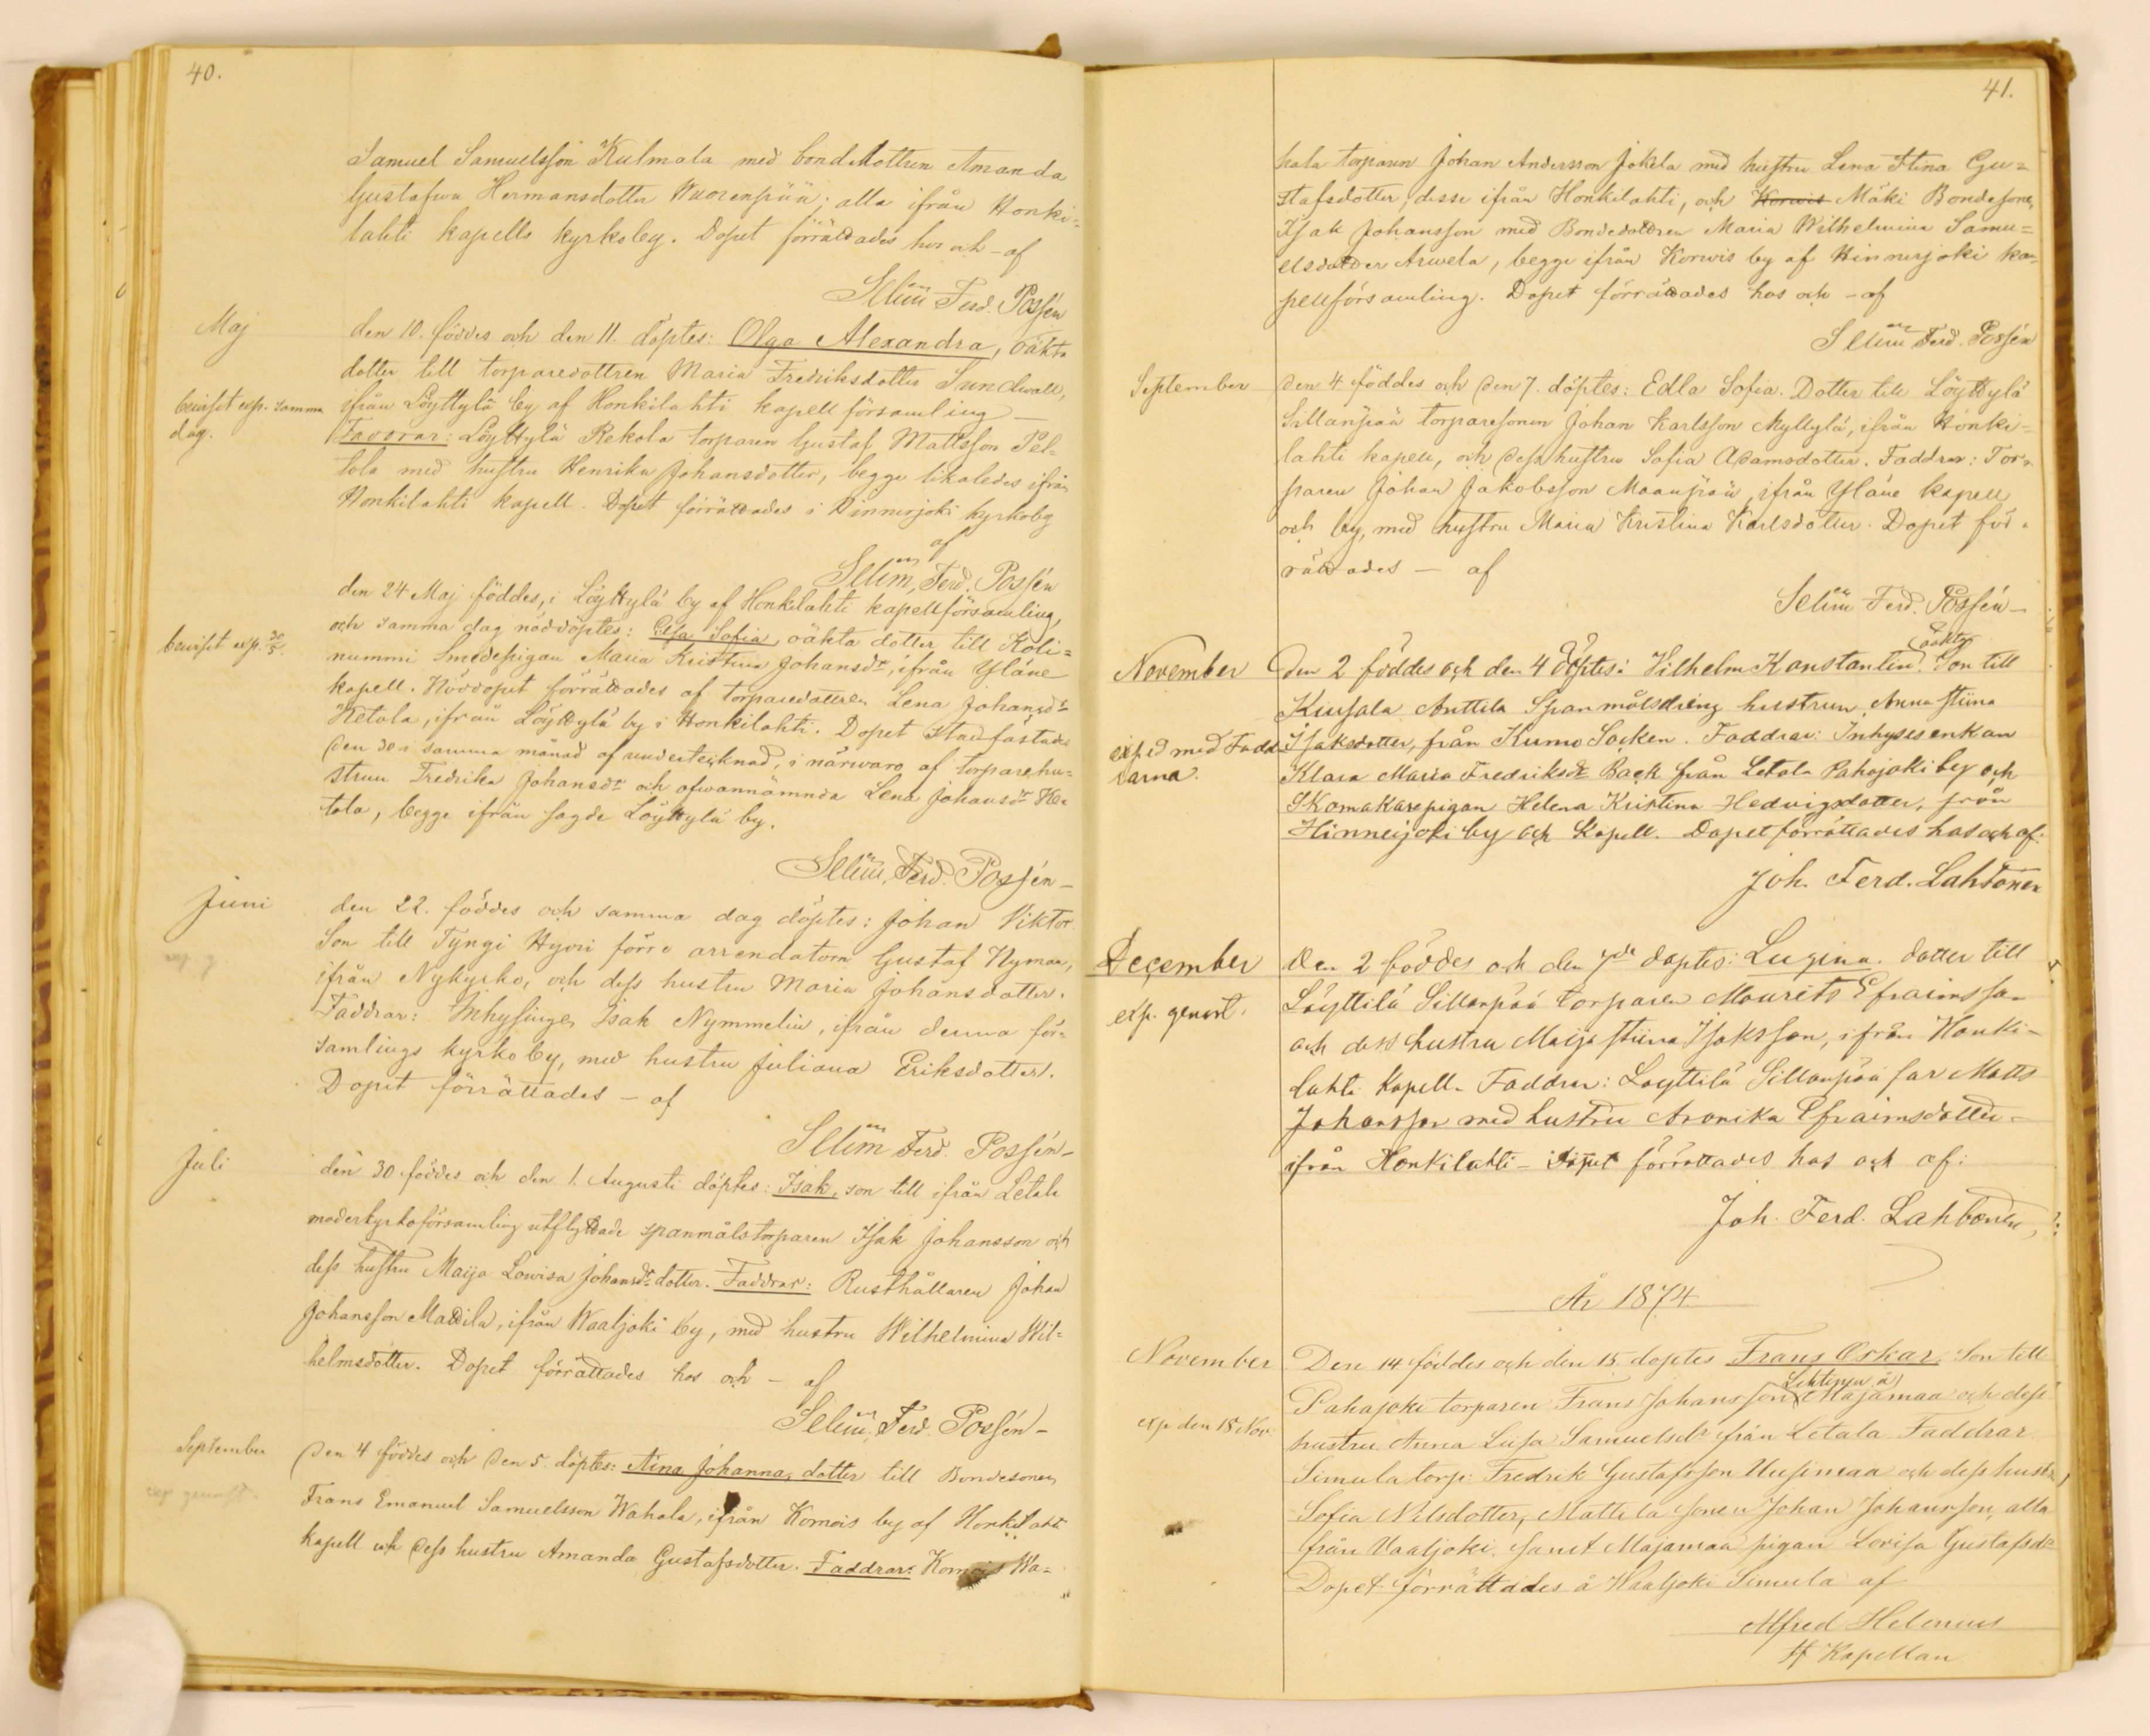 40.
Samuel Samuelsson Kulmala med bonddottren Amanda
Gustafwa Hermansdotter Wuorenpää; alla ifrån Honki=
lahti kapells kyrkoby. Dopet förrättades hos och - af
Selim Ferd. Possén
Maj
den 10. föddes och den 11. döptes: Olga Alexandra, oäkta
dotter till torparedottren Maria Fredriksdotter Sundwall,
beviset exp. samma
dag.
ifrån Löyttylä by af Honkilahti kapellförsamling –
Faddrar: Löyttylä Rekola torparen Gustaf Mattsson Pel=
tola med hustru Henrika Johansdotter, begge likaledes ifrån
Honkilahti kapell. Dopet förrättades i Hinnerjoki kyrkoby
af
Selim Ferd. Possén
den 24 Maj föddes, i Löyttylä by af Honkilahti kapellförsamling,
och samma dag nöddöptes: Elsa Sofia, oäkta dotter till Koli=
beviset exp. 30/5.
nummi Smedepigan Maria Kristina Johansdr, ifrån Yläne
kapell. Nöddopet förrättades af torparedottren Lena Johansdr
Ketola, ifrån Löyttylä by i Honkilahti. Dopet stadfästades
den 30 i samma månad af undertecknad, i närwaro af torparehu=
strun Fredrika Johansdr och ofwannämnda Lena Johansdr Ke=
tola, begge ifrån sagde Löyttylä by.
Selim Ferd. Possén –
Juni
den 22. föddes och samma dag döptes: Johan Viktor
Son till Tyngi Hyori förre arrendatorn Gustaf Nyman,
ifrån Nykyrko, och dess hustru Maria Johansdotter.
Faddrar: Inhysingen Isak Nymmelin, ifrån denna för=
samlings kyrkoby, med hustru Juliana Eriksdotter.
Dopet förrättades – af
Selim Ferd. Possén –
Juli
den 30 föddes och den 1. Augusti döptes: Isak, son till ifrån Letala
moderkyrkoförsamling utflyttade spanmålstorparen Isak Johansson och
dess hustru Maija Lowisa Johansdr dotter. Faddrar: Rusthållaren Johan
Johansson Mattila, ifrån Waaljoki by, med hustru Wilhelmina Wil=
helmsdotter. Dopet förrättades hos och – af
Selim Ferd. Possén –
September
Den 4 föddes och den 5 döptes: Aina Johanna, dotter till Bondesonen
exp genast.
Frans Emanuel Samuelsson Wahala, ifrån Korwois by af Honkilahti
kapell och dess hustru Amanda Gustafsdotter. Faddrar: Korwois Wa=
41.
hala torparen Johan Andersson Jokela med hustru Lena Stina Gu=
stafsdotter, desse ifrån Honkilahti, och Korwois Mäki Bondesonen
Isak Johansson med Bondedottren Maria Wilhelmina Samu=
elsdotter Arwela, begge ifrån Korwis by af Hinnerjoki ka=
pellförsamling. Dopet förrättades hos och – af
Selim Ferd. Possén
September
den 4 föddes och den 7. döptes: Edla Sofia. Dotter till Löyttylä
Sillanpää torparesonen Johan Karlsson Myllylä, ifrån Honki=
lahti kapell, och dess hustru Sofia Adamsdotter. Faddrar: Tor=
paren Johan Jakobsson Maanpää, ifrån Yläne kapell
och by, med hustru Maria Kristina Karlsdotter. Dopet för=
rättades – af
Selim Ferd. Possén –
November
oäkta
Den 2 föddes och den 4 döptes: Vilhelm Konstantin. Son till
Kiusala Anttila Spanmålsdräng hustrun Anna Stiina
exp:d med Fadd
rarna.
Isaksdotter, från Kumo Socken. Faddrar: Inhyses enkan
Klara Maria Fredriksdr Back från Letala Pahajoki by och
Skomakarepigan Helena Kristina Hedvigsdotter, från
Hinnerjoki by och Kapell. Dopet förrättades hos och af:
Joh. Ferd. Lahtonen
December
Den 2 föddes och den 7de döptes: Lugina. dotter till
exp. genast.
Löyttilä Sillanpää torparen Mourits Efraimsson
och dess hustru Maija Stiina Isaksson, ifrån Honki-
lahti Kapell. Faddrar: Löyttilä Sillanpää far Matts
Johansson med hustru Aronika Efraimsdotter –
ifrån Honkilahti – Dopet förrättades hos och af:
Joh. Ferd. Lahtonen,
År 1874
November
Den 14 föddes och den 15 döptes Frans Oskar, Son till
Lehtinen å
Pahajoki torparen Frans Johansson Majamaa och dess
exp den 18 Nov.
hustru Anna Lusa Samuelsdr från Letala. Faddrar
Simula torp: Fredrik Gustafsson Uusimaa och dess hustru
Sofia Nilsdotter, Mattila sonen Johan Johansson, alla
från Vaaljoki, samt Majamaa pigan Lovisa Gustafsdr
Dopet förrättades å Waaljoki Simula af
Alfred Helenius
tf Kapellan